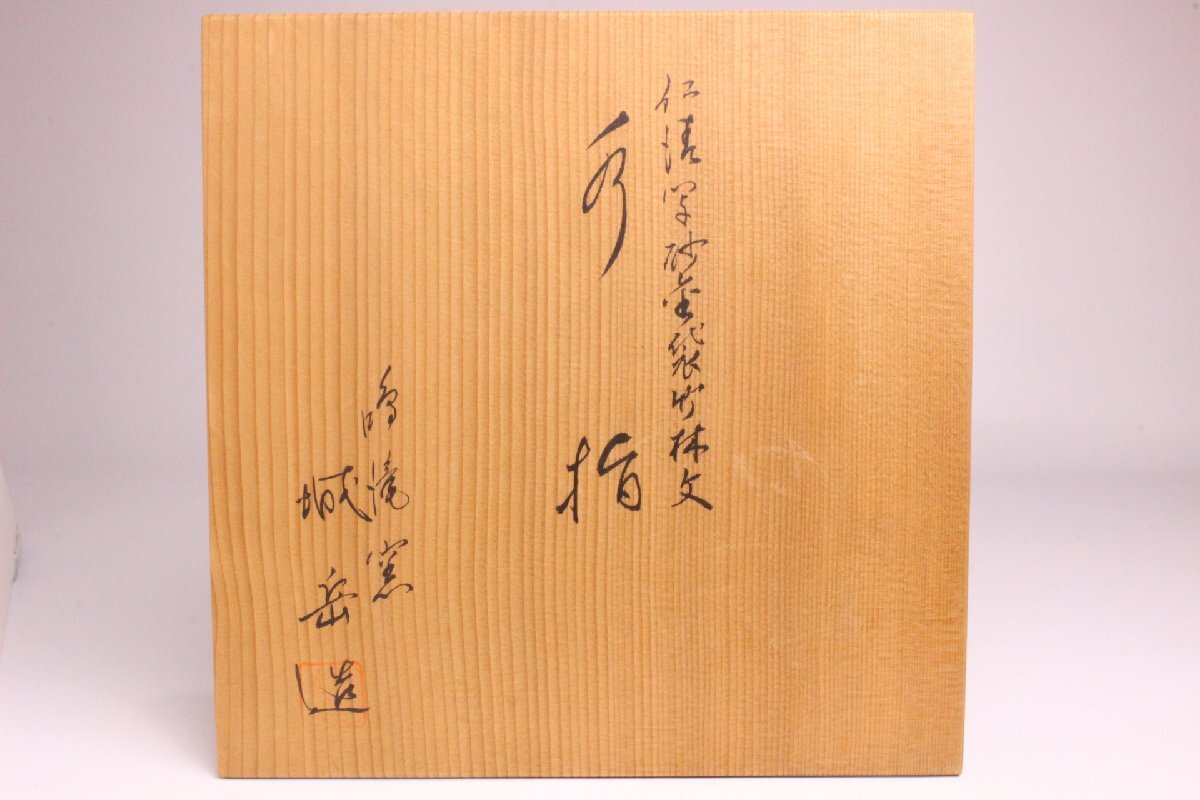 仁清写砂金袋竹林文
水指
鳴滝窯
城岳造